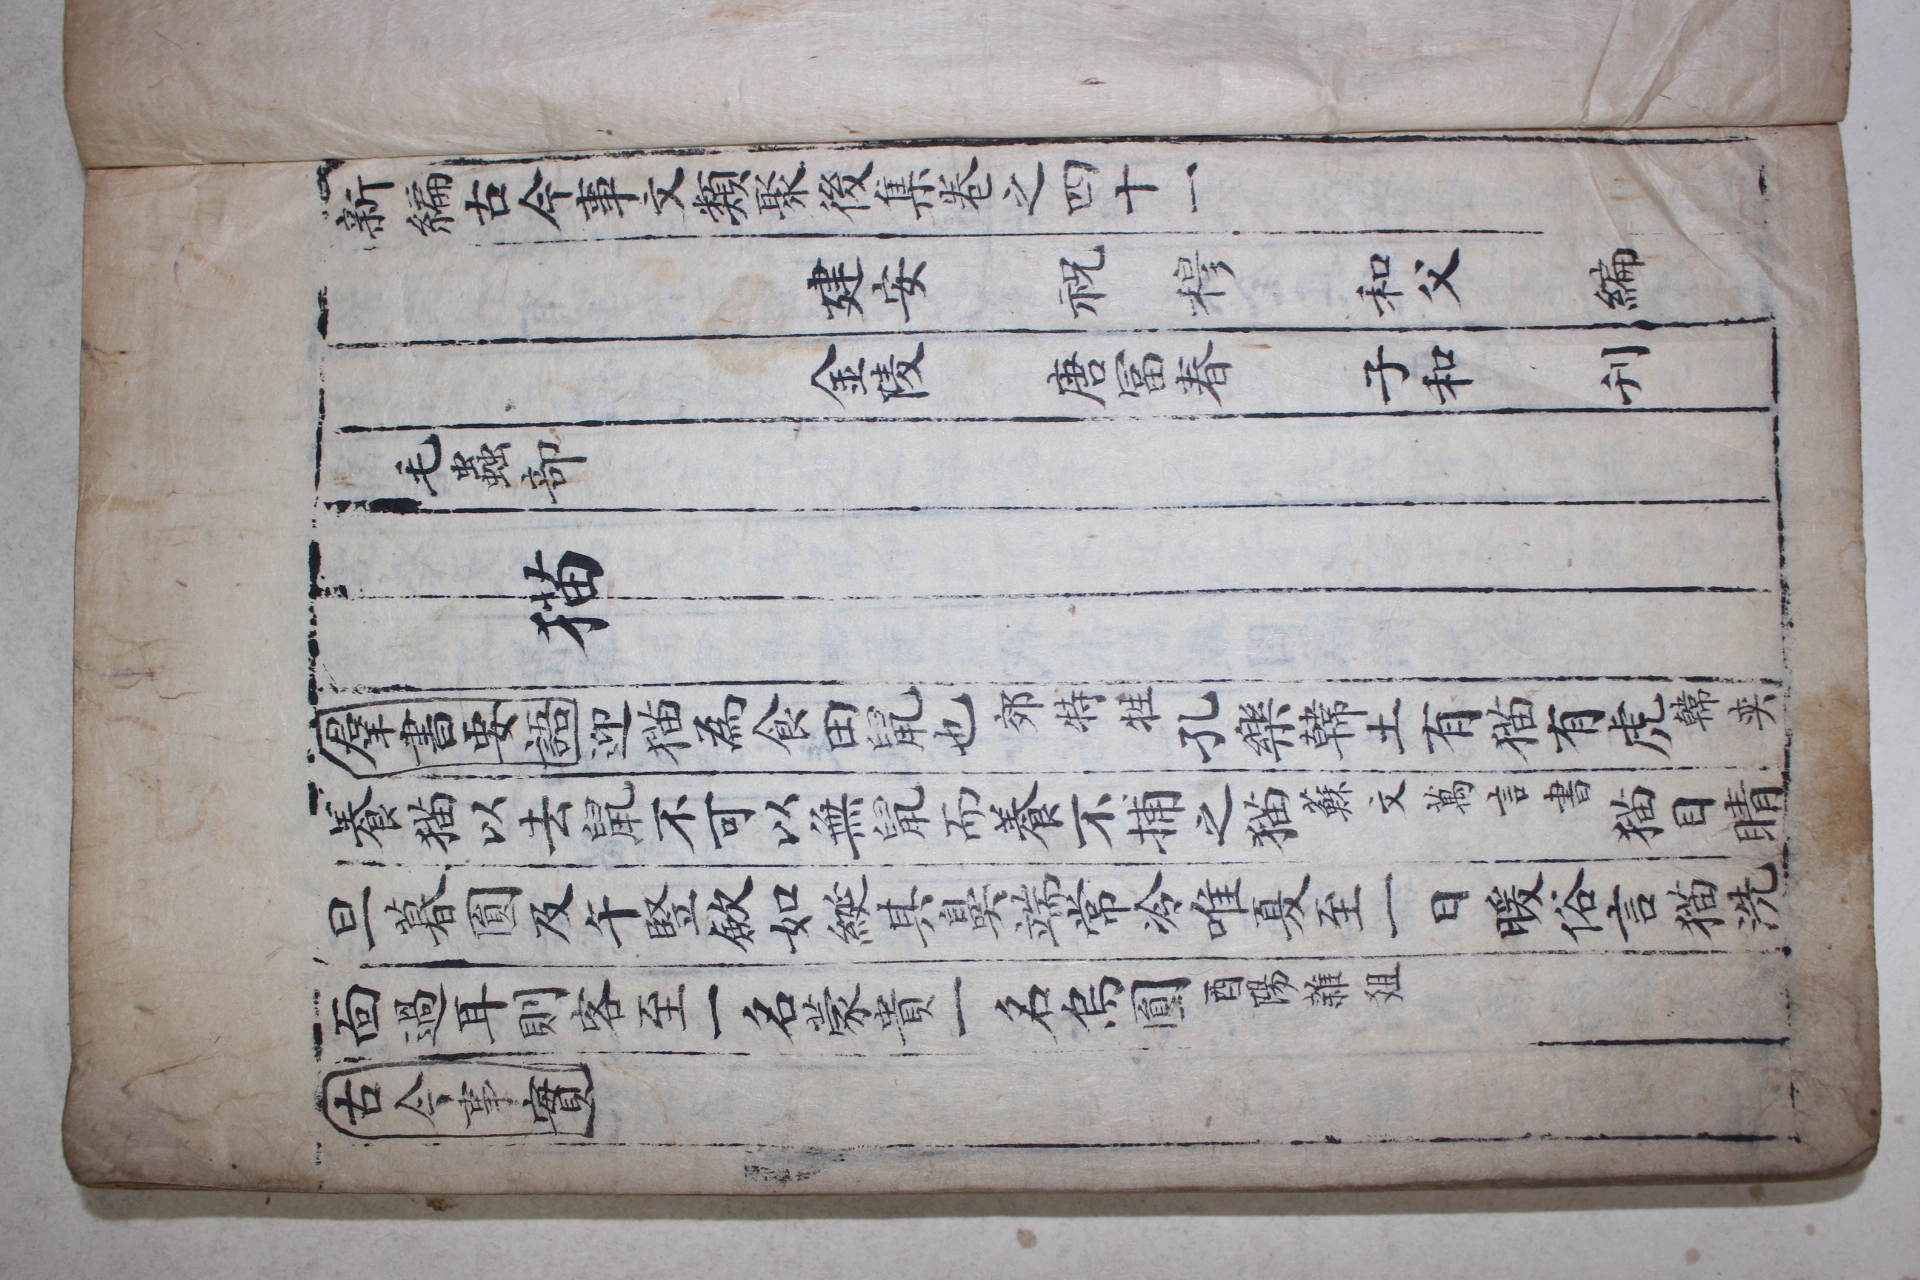 新編古今事文類聚後集卷之四十一
建安 祝 穆 和父 編
金陵 唐富春 子和 刋
毛蟲部
猫
羣書要語 迎猫為食田鼠也 郊特牲 孔樂韓土有猫有虎 韓奕
養猫以去鼠不可以無鼠而養不捕之猫 蘇文萬言書 猫目睛
旦暮圓及午竪斂如綖其鼻端常冷唯夏至一日暖俗言猫洗
面過耳則客至一名蒙貴一名烏圓 酉陽雜俎
古今事實